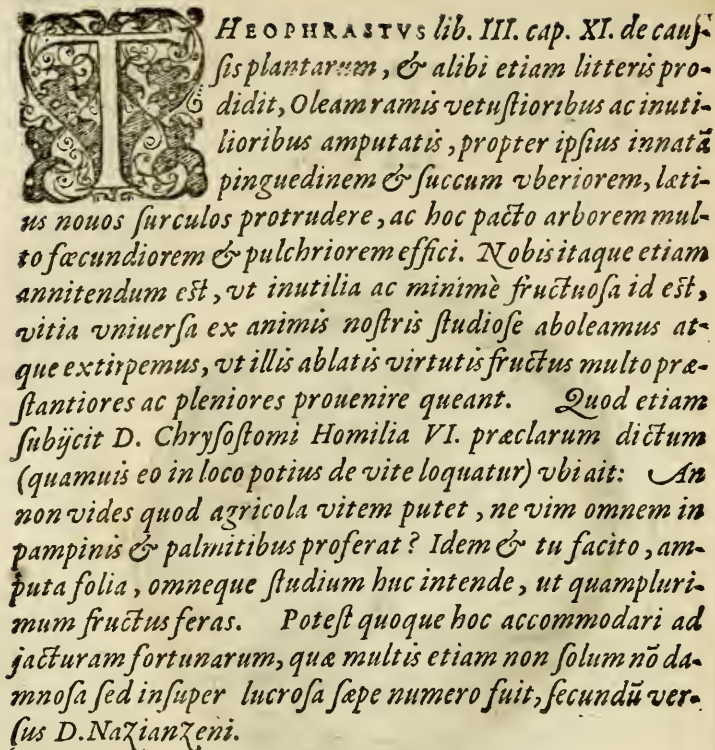 THEOPHRASTVS lib. III. cap. XI. de cauſ-
ſis plantarum, & alibi etiam litteris pro-
didit, Oleam ramis vetuſtioribus ac inuti-
lioribus amputatis, propter ipſius innatã
pinguedinem & ſuccum vberiorem, læti-
us nouos ſurculos protrudere, ac hoc pacto arborem mul-
to fœcundiorem & pulchriorem effici. Nobis itaque etiam
annitendum eſt, vt inutilia ac minimè fructuoſa id eſt,
vitia vniuerſa ex animis noſtris ſtudioſe aboleamus at-
que extirpemus, vt illis ablatis virtutis fructus multo præ-
ſtantiores ac pleniores prouenire queant. Quod etiam
ſubijcit D. Chryſoſtomi Homilia VI. præclarum dictum
(quamuis eo in loco potius de vite loquatur) vbi ait: An
non vides quod agricola vitem putet, ne vim omnem in
pampinis & palmitibus proferat? Idem & tu facito, am-
puta folia, omneque ſtudium huc intende, ut quampluri-
mum fructus feras. Poteſt quoque hoc accommodari ad
jacturam fortunarum, quæ multis etiam non ſolum nõ da-
mnoſa ſed inſuper lucroſa ſæpe numero fuit, ſecundũ ver-
ſus D. Nazianzeni.